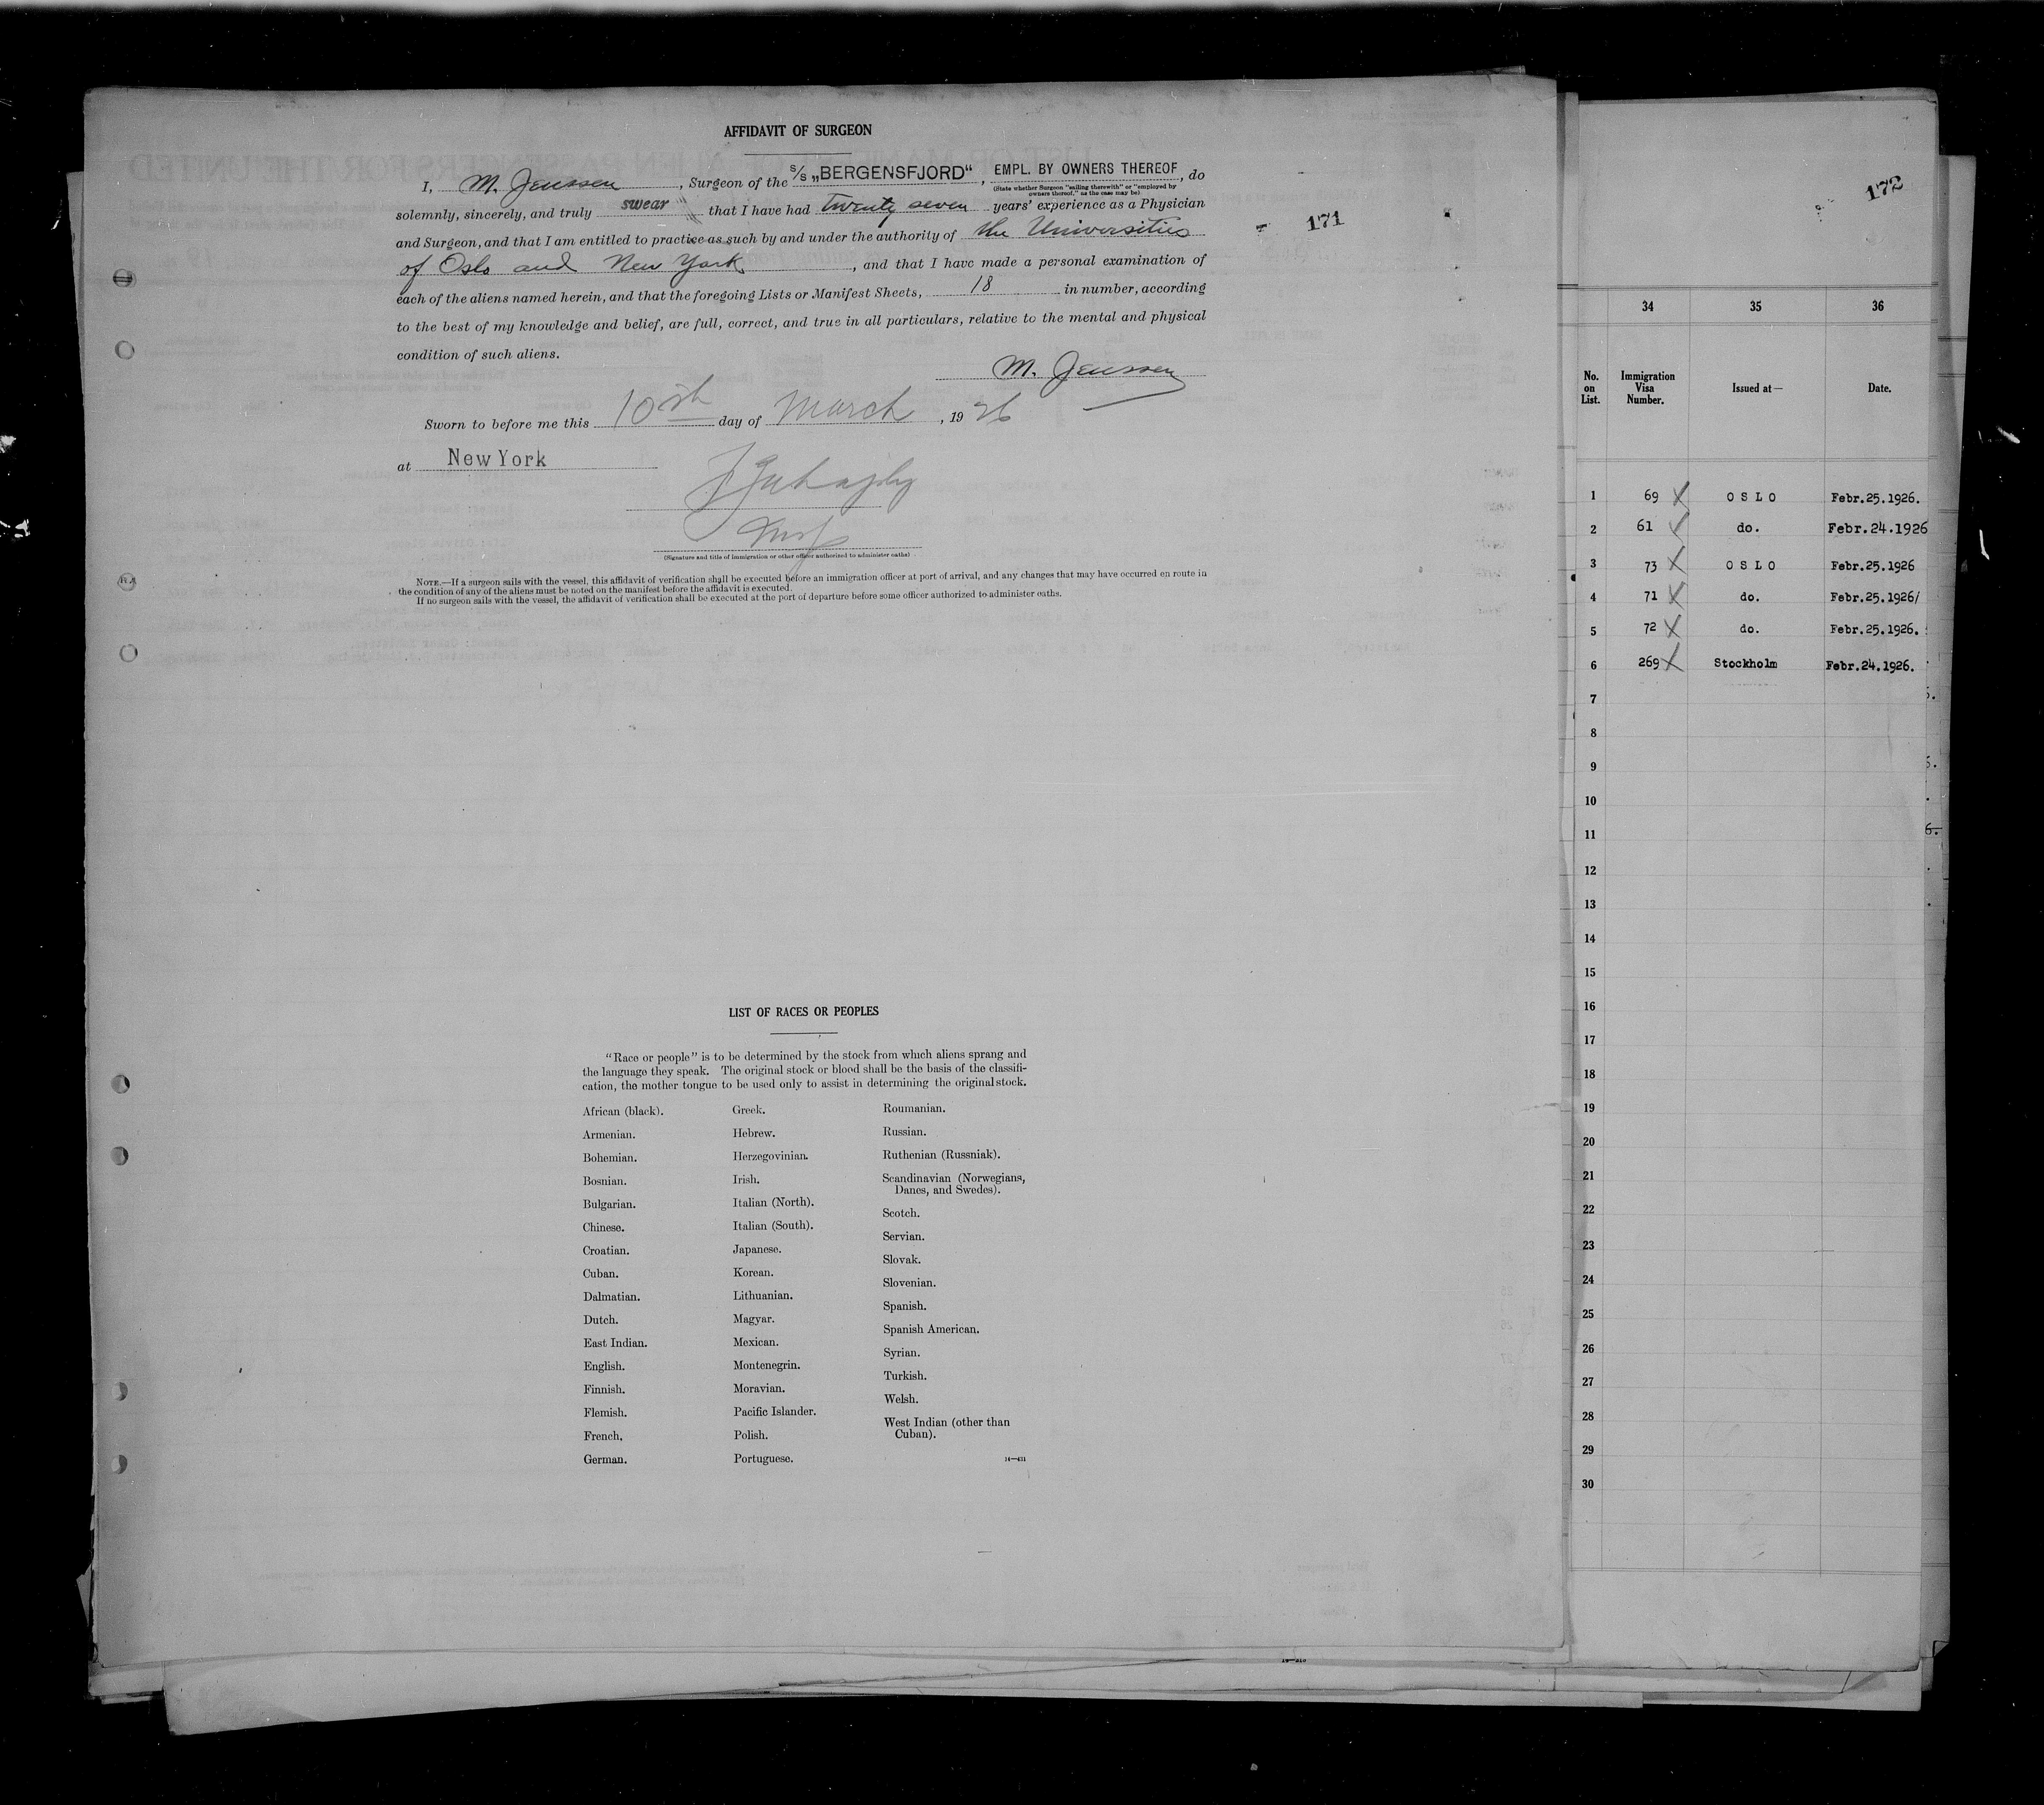 AFFIDAVIT OF SURGEON
I, M. Jenssen, Surgeon of the s/s „BERGENSFJORD“, EMPL. BY OWNERS THEREOF, do
(State whether Surgeon "sailing therewith" or "employed by
owners thereof," as the case may be)
solemnly, sincerely, and truly swear that I have had twenty seven years' experience as a Physician
and Surgeon, and that I am entitled to practice as such by and under the authority of the Universities
of Oslo and New York, and that I have made a personal examination of
each of the aliens named herein, and that the foregoing Lists or Manifest Sheets, 18 in number, according
to the best of my knowledge and belief, are full, correct, and true in all particulars, relative to the mental and physical
condition of such aliens.
M. Jenssen
Sworn to before me this 10th day of March, 1926
at New York
Insp
(Signature and title of immigration or other officer authorized to administer oaths)
NOTE.—If a surgeon sails with the vessel, this affidavit of verification shall be executed before an immigration officer at port of arrival, and any changes that may have occurred en route in
the condition of any of the aliens must be noted on the manifest before the affidavit is executed.
If no surgeon sails with the vessel, the affidavit of verification shall be executed at the port of departure before some officer authorized to administer oaths.
171
LIST OF RACES OR PEOPLES
"Race or people" is to be determined by the stock from which aliens sprang and
the language they speak. The original stock or blood shall be the basis of the classifi-
cation, the mother tongue to be used only to assist in determining the original stock.
African (black).
Armenian.
Bohemian.
Bosnian.
Bulgarian.
Chinese.
Croatian.
Cuban.
Dalmatian.
Dutch.
East Indian.
English.
Finnish.
Flemish.
French.
German.
Greek.
Hebrew.
Herzegovinian.
Irish.
Italian (North).
Italian (South).
Japanese.
Korean.
Lithuanian.
Magyar.
Mexican.
Montenegrin.
Moravian.
Pacific Islander.
Polish.
Portuguese.
Roumanian.
Russian.
Ruthenian (Russniak).
Scandinavian (Norwegians,
Danes, and Swedes).
Scotch.
Servian.
Slovak.
Slovenian.
Spanish.
Spanish American.
Syrian.
Turkish.
Welsh.
West Indian (other than
Cuban).
14—431
172
34 35 36
No. on List. Immigration Visa Number. Issued at— Date.
1 69 OSLO Febr.25.1926.
2 61 do. Febr.24.1926
3 73 OSLO Febr.25.1926
4 71 do. Febr.25.1926/
5 72 do. Febr.25.1926.
6 269 Stockholm Febr.24.1926.
7
8
9
10
11
12
13
14
15
16
17
18
19
20
21
22
23
24
25
26
27
28
29
30